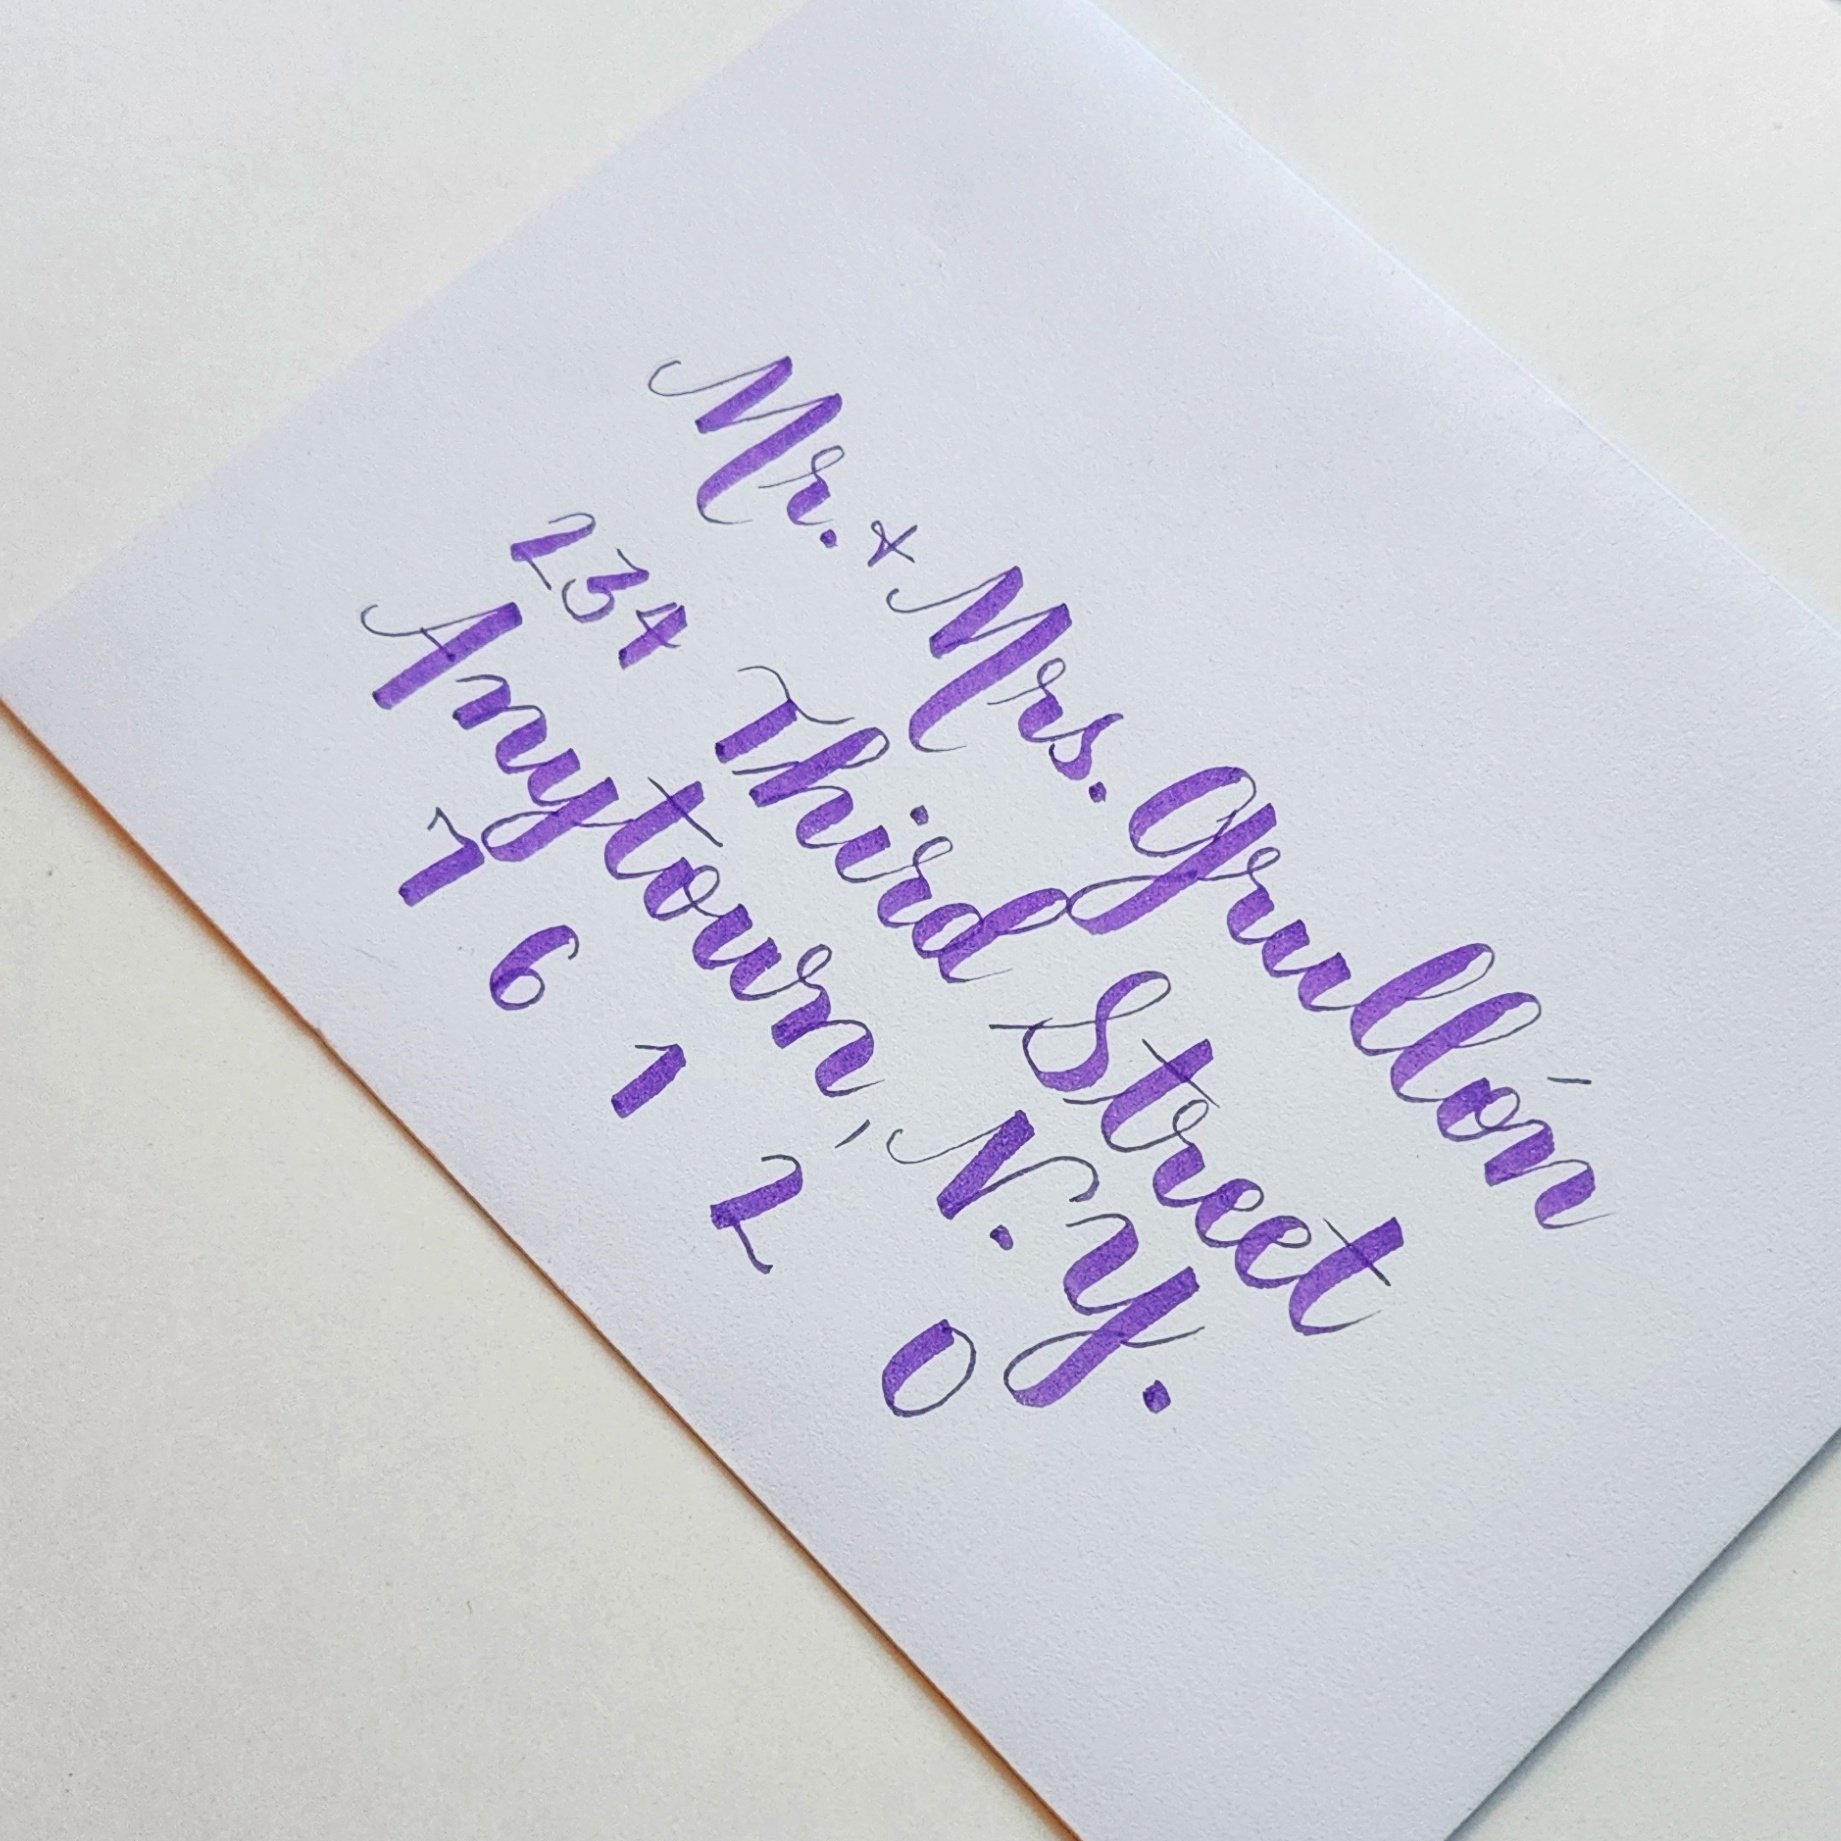 Mr. + Mrs. Grullón
234 Third Street
Anytown, N.Y.
7 6 1 2 0